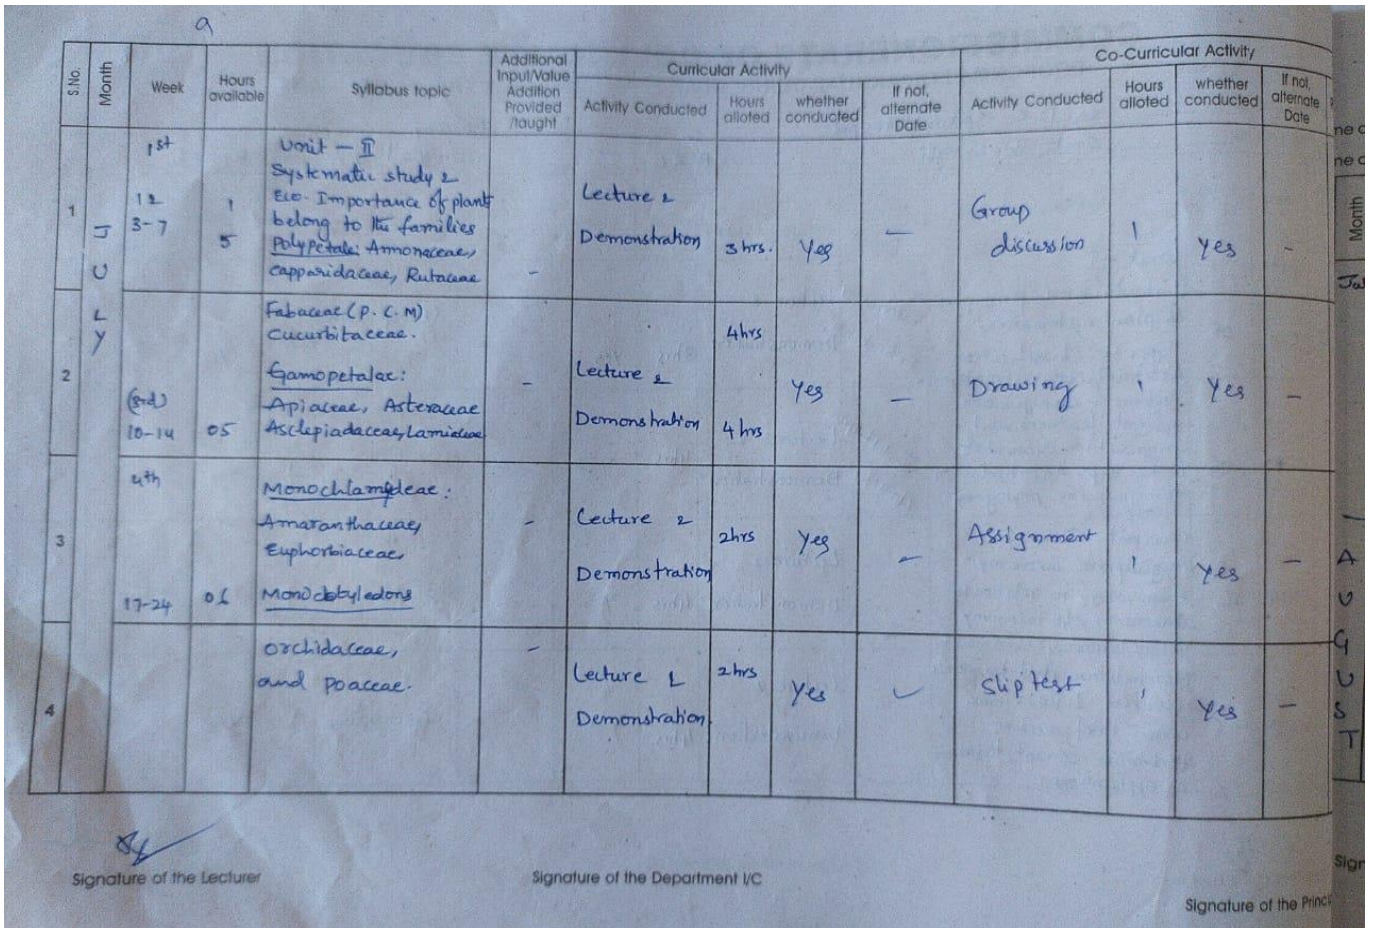 a
S.No.
Month
Week
Hours available
Syllabus topic
Additional Input/Value Addition Provided /taught
Curricular Activity
Activity Conducted
Hours alloted
whether conducted
If not, alternate Date
Co-Curricular Activity
Activity Conducted
Hours alloted
whether conducted
If not, alternate Date
JULY
1
1st
12
3-7
1
5
Unit - II
Systematic study &
Eco. Importance of plants
belong to the families
Polypetale: Annonaceae,
Capparidaceae, Rutaceae
-
Lecture &
Demonstration
3 hrs.
Yes
-
Group
discussion
1
Yes
-
2
(3rd)
10-14
05
Fabaceae (P. C. M)
Cucurbitaceae.
Gamopetalae:
Apiaceae, Asteraceae
Asclepiadaceae, Lamiaceae
-
Lecture &
Demonstration
4hrs
4 hrs
Yes
-
Drawing
1
Yes
-
3
4th
17-24
06
Monochlamydeae:
Amaranthaceae,
Euphorbiaceae,
Monocotyledons
-
Lecture &
Demonstration
2hrs
Yes
-
Assignment
1
Yes
-
4
Orchidaceae,
and Poaceae.
-
Lecture &
Demonstration
2 hrs
Yes
Slip test
1
Yes
-
Signature of the Lecturer
Signature of the Department I/C
Signature of the Princi
Month
AUGUST
Sign